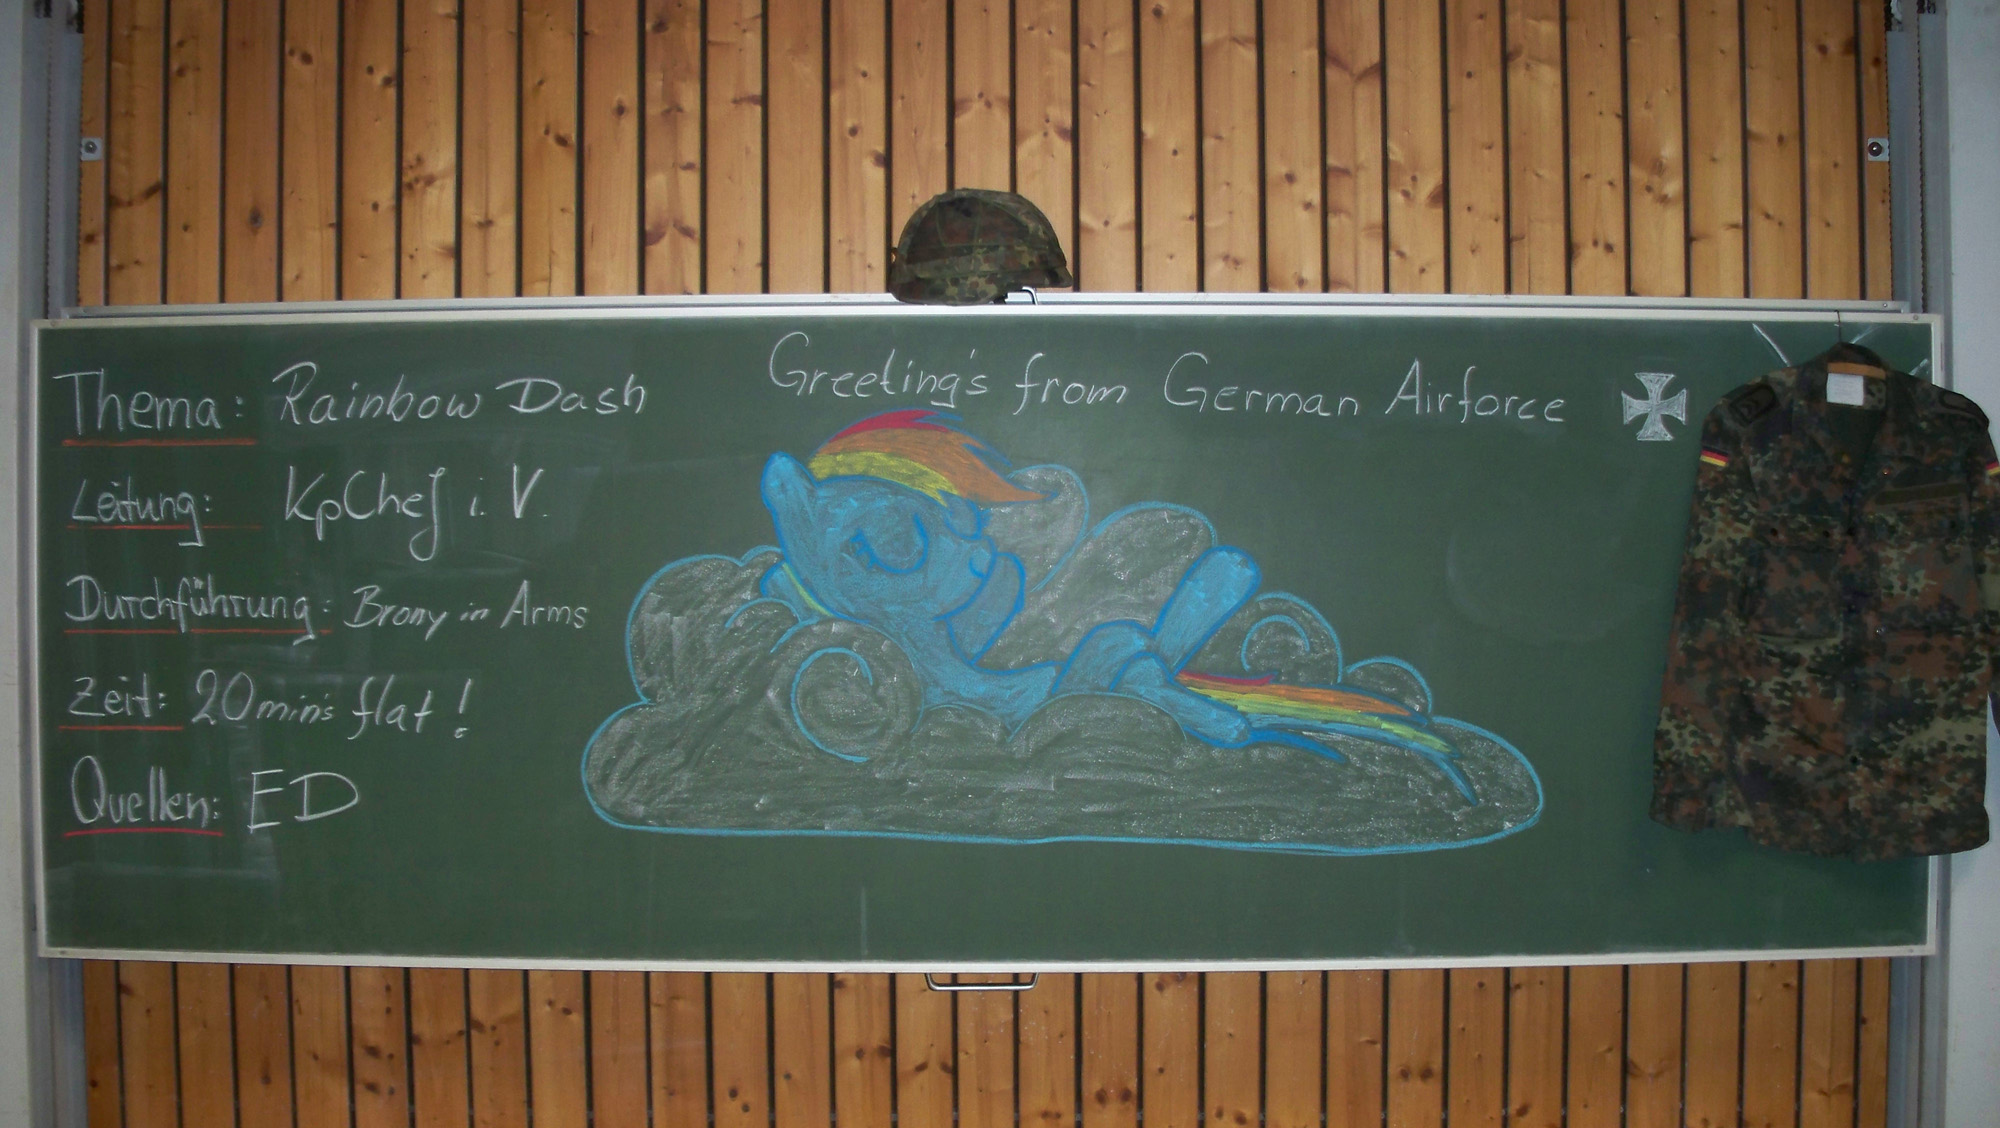 Thema: Rainbow Dash
Leitung: KpChef i. V.
Durchführung: Brony in Arms
Zeit: 20min's flat!
Quellen: ED
Greeting's from German Airforce